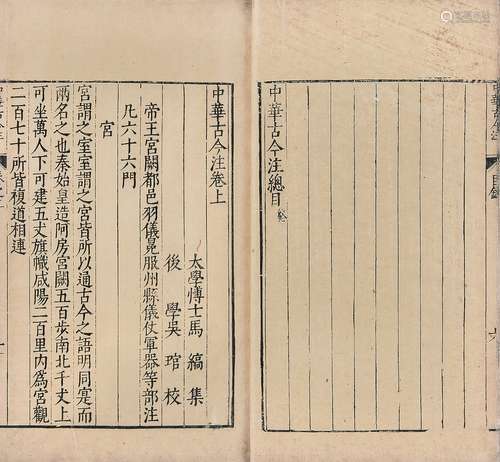 中華古今注總目終
中華古今注卷上
太學博士馬縞集
後學吳琯校
帝王宮闕都邑羽儀冕服州縣儀仗軍器等部注
凡六十六門
宮
宮謂之室室謂之宮皆所以通古今之語明同寔而
兩名之也秦始皇造阿房宮闕五百步南北千丈上
可坐萬人下可建五丈旗幟咸陽二百里内為宮觀
二百七十所皆複道相連